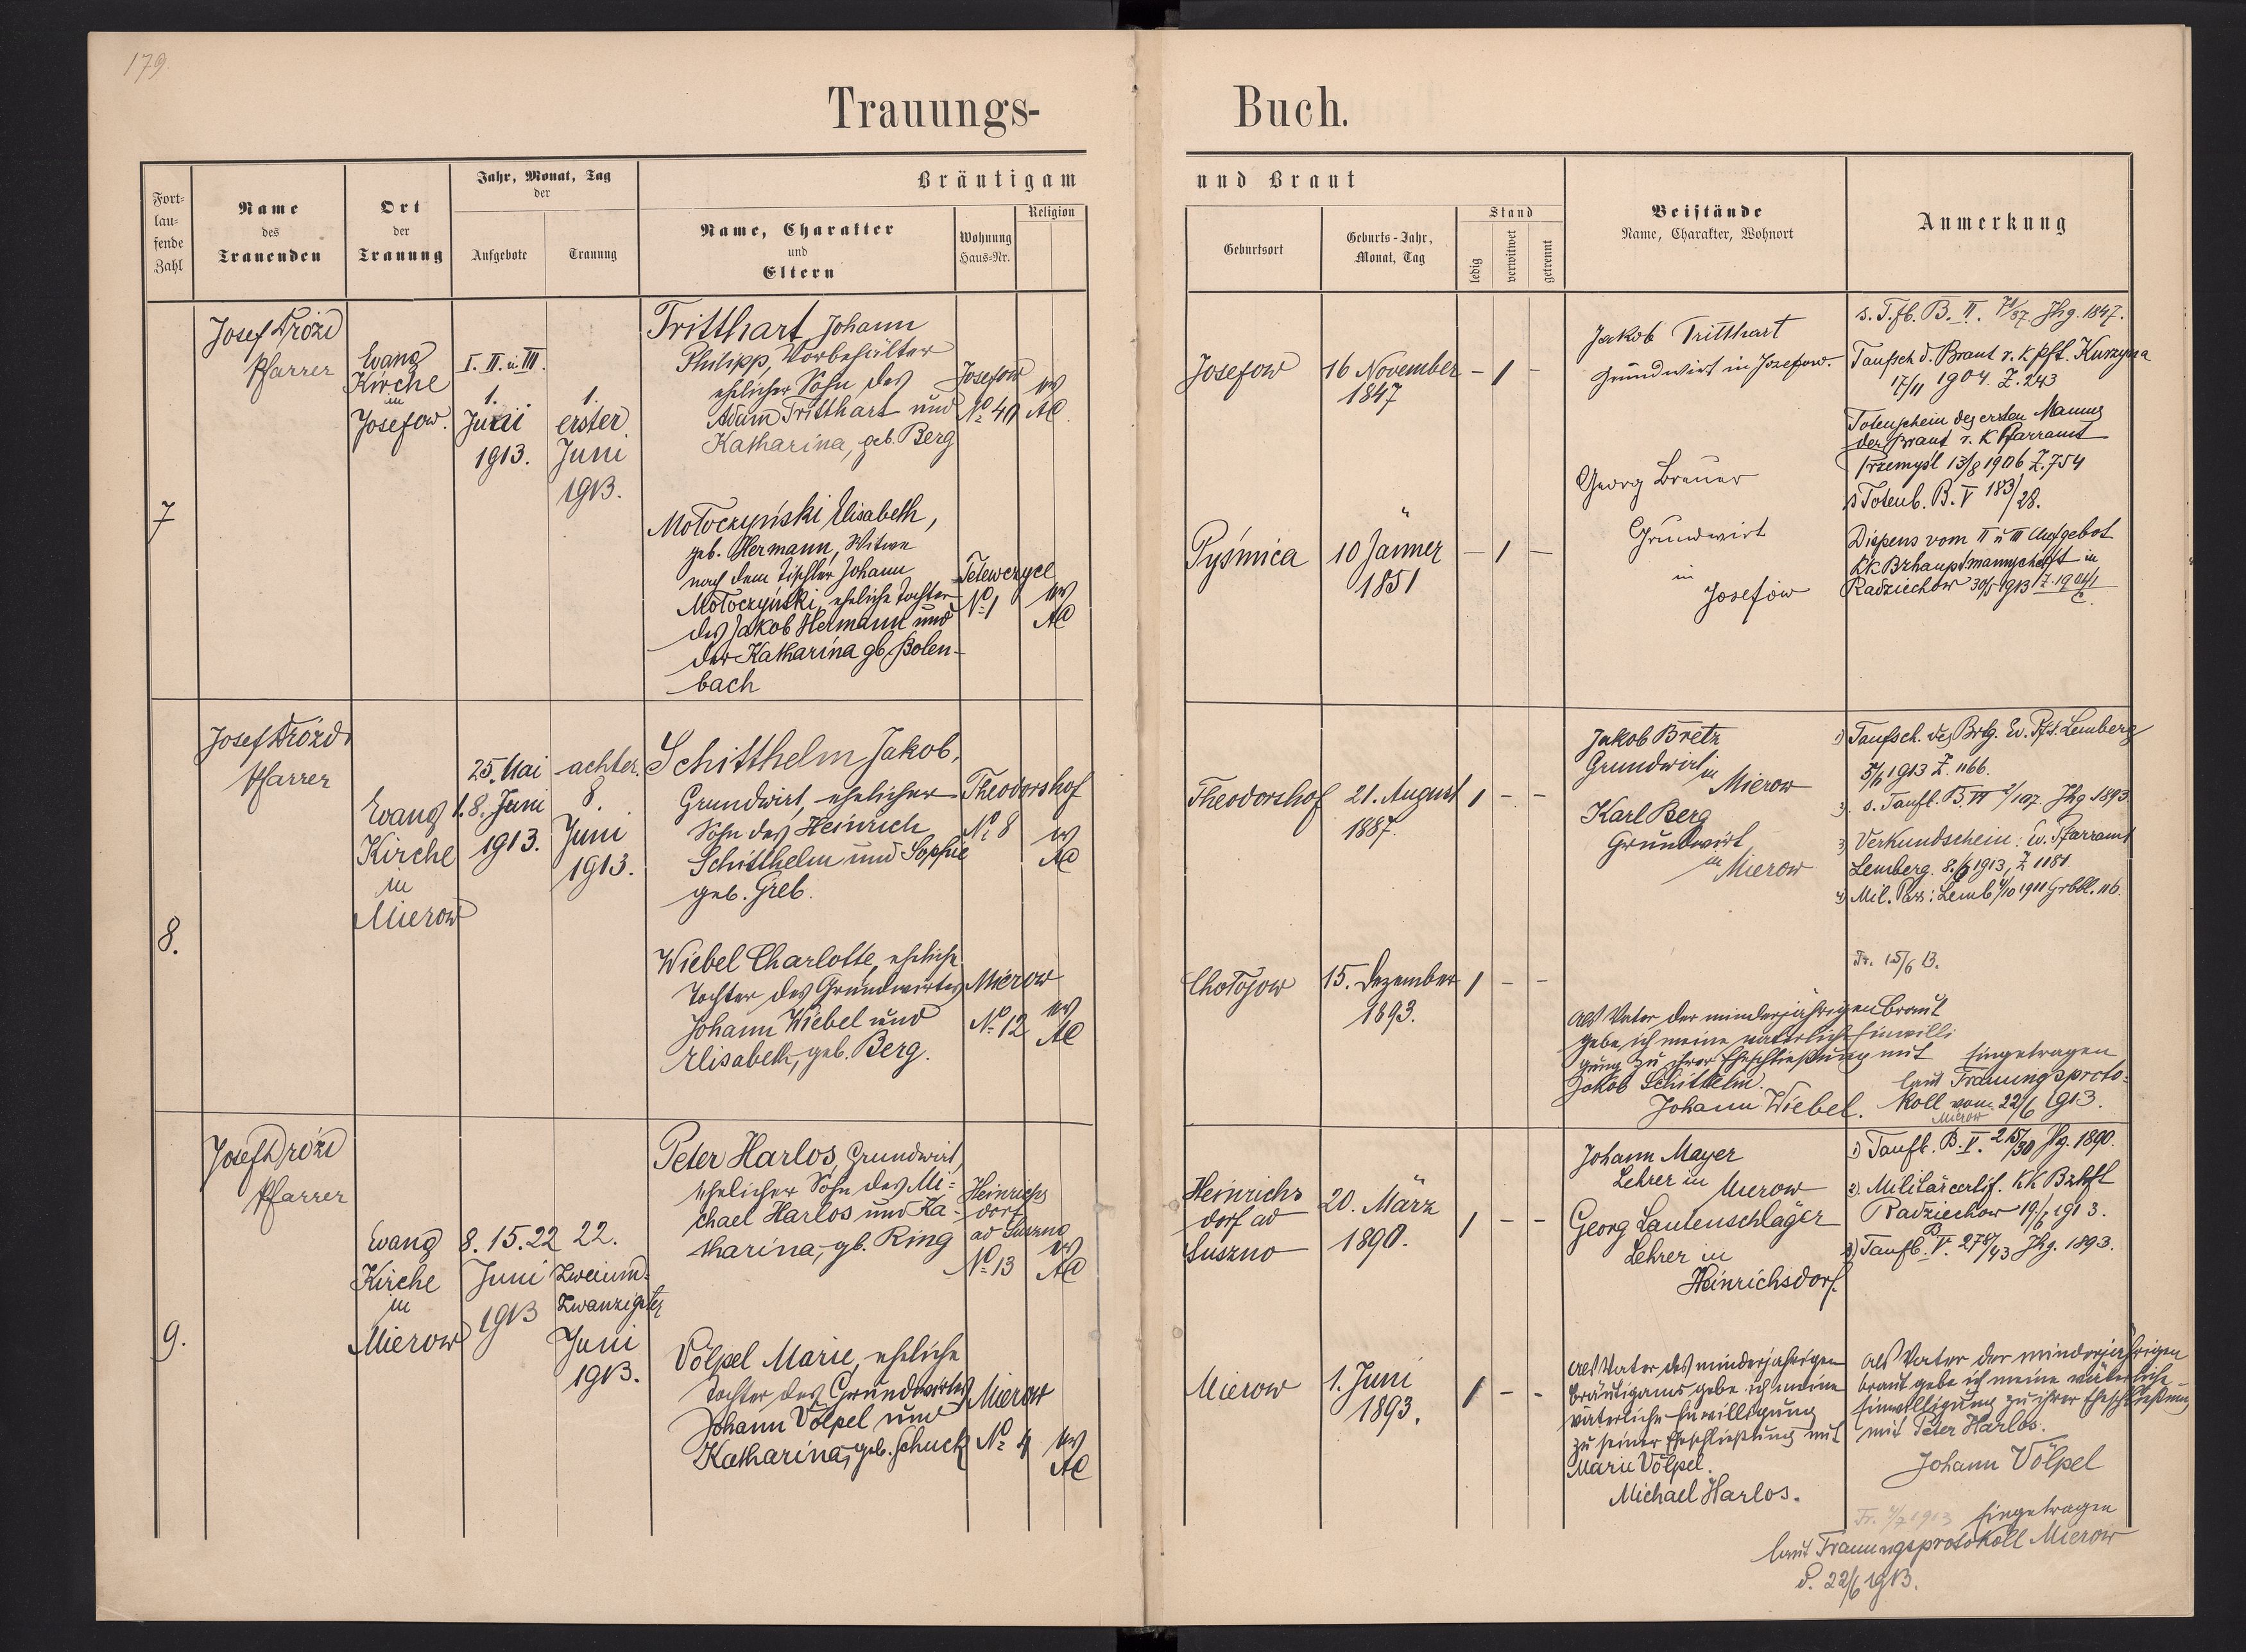 179.
Trauungs-
Buch.
Fort-
lau-
fende
Zahl
Name
des
Trauenden
Ort
der
Trauung
Jahr, Monat, Tag
der
Aufgebote
Trauung
Bräutigam
Name, Charakter
und
Eltern
Wohnung
Haus-Nr.
Religion
und Braut
Geburtsort
Geburts-Jahr,
Monat, Tag
Stand
ledig
verwitwet
getrennt
Beistände
Name, Charakter, Wohnort
Anmerkung
7
Josef Drózd
Pfarrer
Evang
Kirche
in
Josefow.
I. II. u. III.
1.
Juni
1913.
1.
erster
Juni
1913.
Tritthart Johann
Philipp, Vorbehälter
ehelicher Sohn des
Adam Tritthart und
Katharina, geb. Berg
Josefow
No 40
ev
AC.
Josefow
16 November
1847
– 1 –
Jakob Tritthart
Grundwirt in Josefow.
s. T.fb. B. II. 71/37. Jhg. 1847.
Taufsch d. Braut r. k Pft. Kurzyna
17/11 1904. Z. 243
Totenschein des ersten Mannes
der Braut r. k Pfarramt
Przemysl 13/8 1906 Z. 754
s Totenb. B. V 183/28.
Dispens vom II u III Aufgebot
kk Bzhauptmannschaft in
Radziechow 30/5 1913 Z. 19041/c.
Mołoczyński Elisabeth,
geb. Hermann, Witwe
nach dem Tischler Johann
Mołoczyński, eheliche Tochter
des Jakob Hermann und
der Katharina gb. Bolen-
bach
Tetewczyce
No 1
ev
AC
Pyśnica
10 Jänner
1851
– 1 –
Georg Breuer
Grundwirt
in
Josefow
8.
Josef Drózd
Pfarrer
Evang
Kirche
in
Mierow
25. Mai
1. 8. Juni
1913.
achter.
8.
Juni
1913.
Schitthelm Jakob,
Grundwirt, ehelicher
Sohn des Heinrich
Schitthelm und Sophie
geb. Greb.
Theodorshof
No 8
ev
AC
Theodorshof
21. August
1887.
1 – –
Jakob Bretz
Grundwirt
in Mierow
Karl Berg
Grundwirt
in Mierow
1) Taufsch. des Brtg. Ev. Pft. Lemberg
5/6 1913 Z. 1166.
2). s. Taufb. B. VI 2/107. Jhg 1893.
3) Verkundschein: Ev. Pfarramt
Lemberg. 8./6 1913, Z 1181.
4) Mil. Pass: Lemb 4/10 1911 Grbbl. 116.
Wiebel Charlotte, eheliche
Tochter des Grundwirtes
Johann Wiebel und
Elisabeth, geb. Berg.
Mierow
No 12
ev
AC
Chołojow
15. Dezember
1893.
1 – –
Tr. 15/6 13.
Als Vater der minderjährigen Braut
gebe ich meine väterliche Einwilli
gung zu ihrer Eheschließung mit
Jakob Schitthelm.
Johann Wiebel.
Eingetragen
laut Trauungsproto-
koll von 22/6 1913.
Mierow
9.
Josef Drózd
Pfarrer
Evang
Kirche
in
Mierow
8. 15. 22
Juni
1913
22.
Zweiund-
zwanzigster
Juni
1913.
Peter Harlos, Grundwirt,
ehelicher Sohn des Mi-
chael Harlos und Ka-
tharina, gb. Ring
Heinrichs
dorf
ad Suszno
No 13
ev
AC
Heinrichs
dorf ad
Suszno
20. März
1890.
1 – –
Johann Mayer
Lehrer in Mierow
Georg Lautenschläger
Lehrer in
Heinrichsdorf.
1) Taufb. B. V. 215/30 Jhg. 1890.
2). Militärcertif. KK Bzhft
Radziechow 19./6 1913.
3) Taufb. B V. 278/43 Jhg. 1893.
Völpel Marie, eheliche
Tochter des Grundwirtes
Johann Völpel und
Katharina, geb. Schuck
Mierow
No 4
ev
AC
Mierow
1. Juni
1893.
1 – –
Als Vater des minderjährigen
Bräutigams gebe ich meine
väterliche Einwilligung
zu seiner Eheschließung mit
Marie Völpel.
Michael Harlos.
Als Vater der minderjährigen
Braut gebe ich meine väterliche
Einwilligung zu ihrer Eheschließung
mit Peter Harlos.
Johann Völpel
Tr. 4/7 1913 Eingetragen
laut Trauungsprotokoll Mierow
d. 22/6 1913.